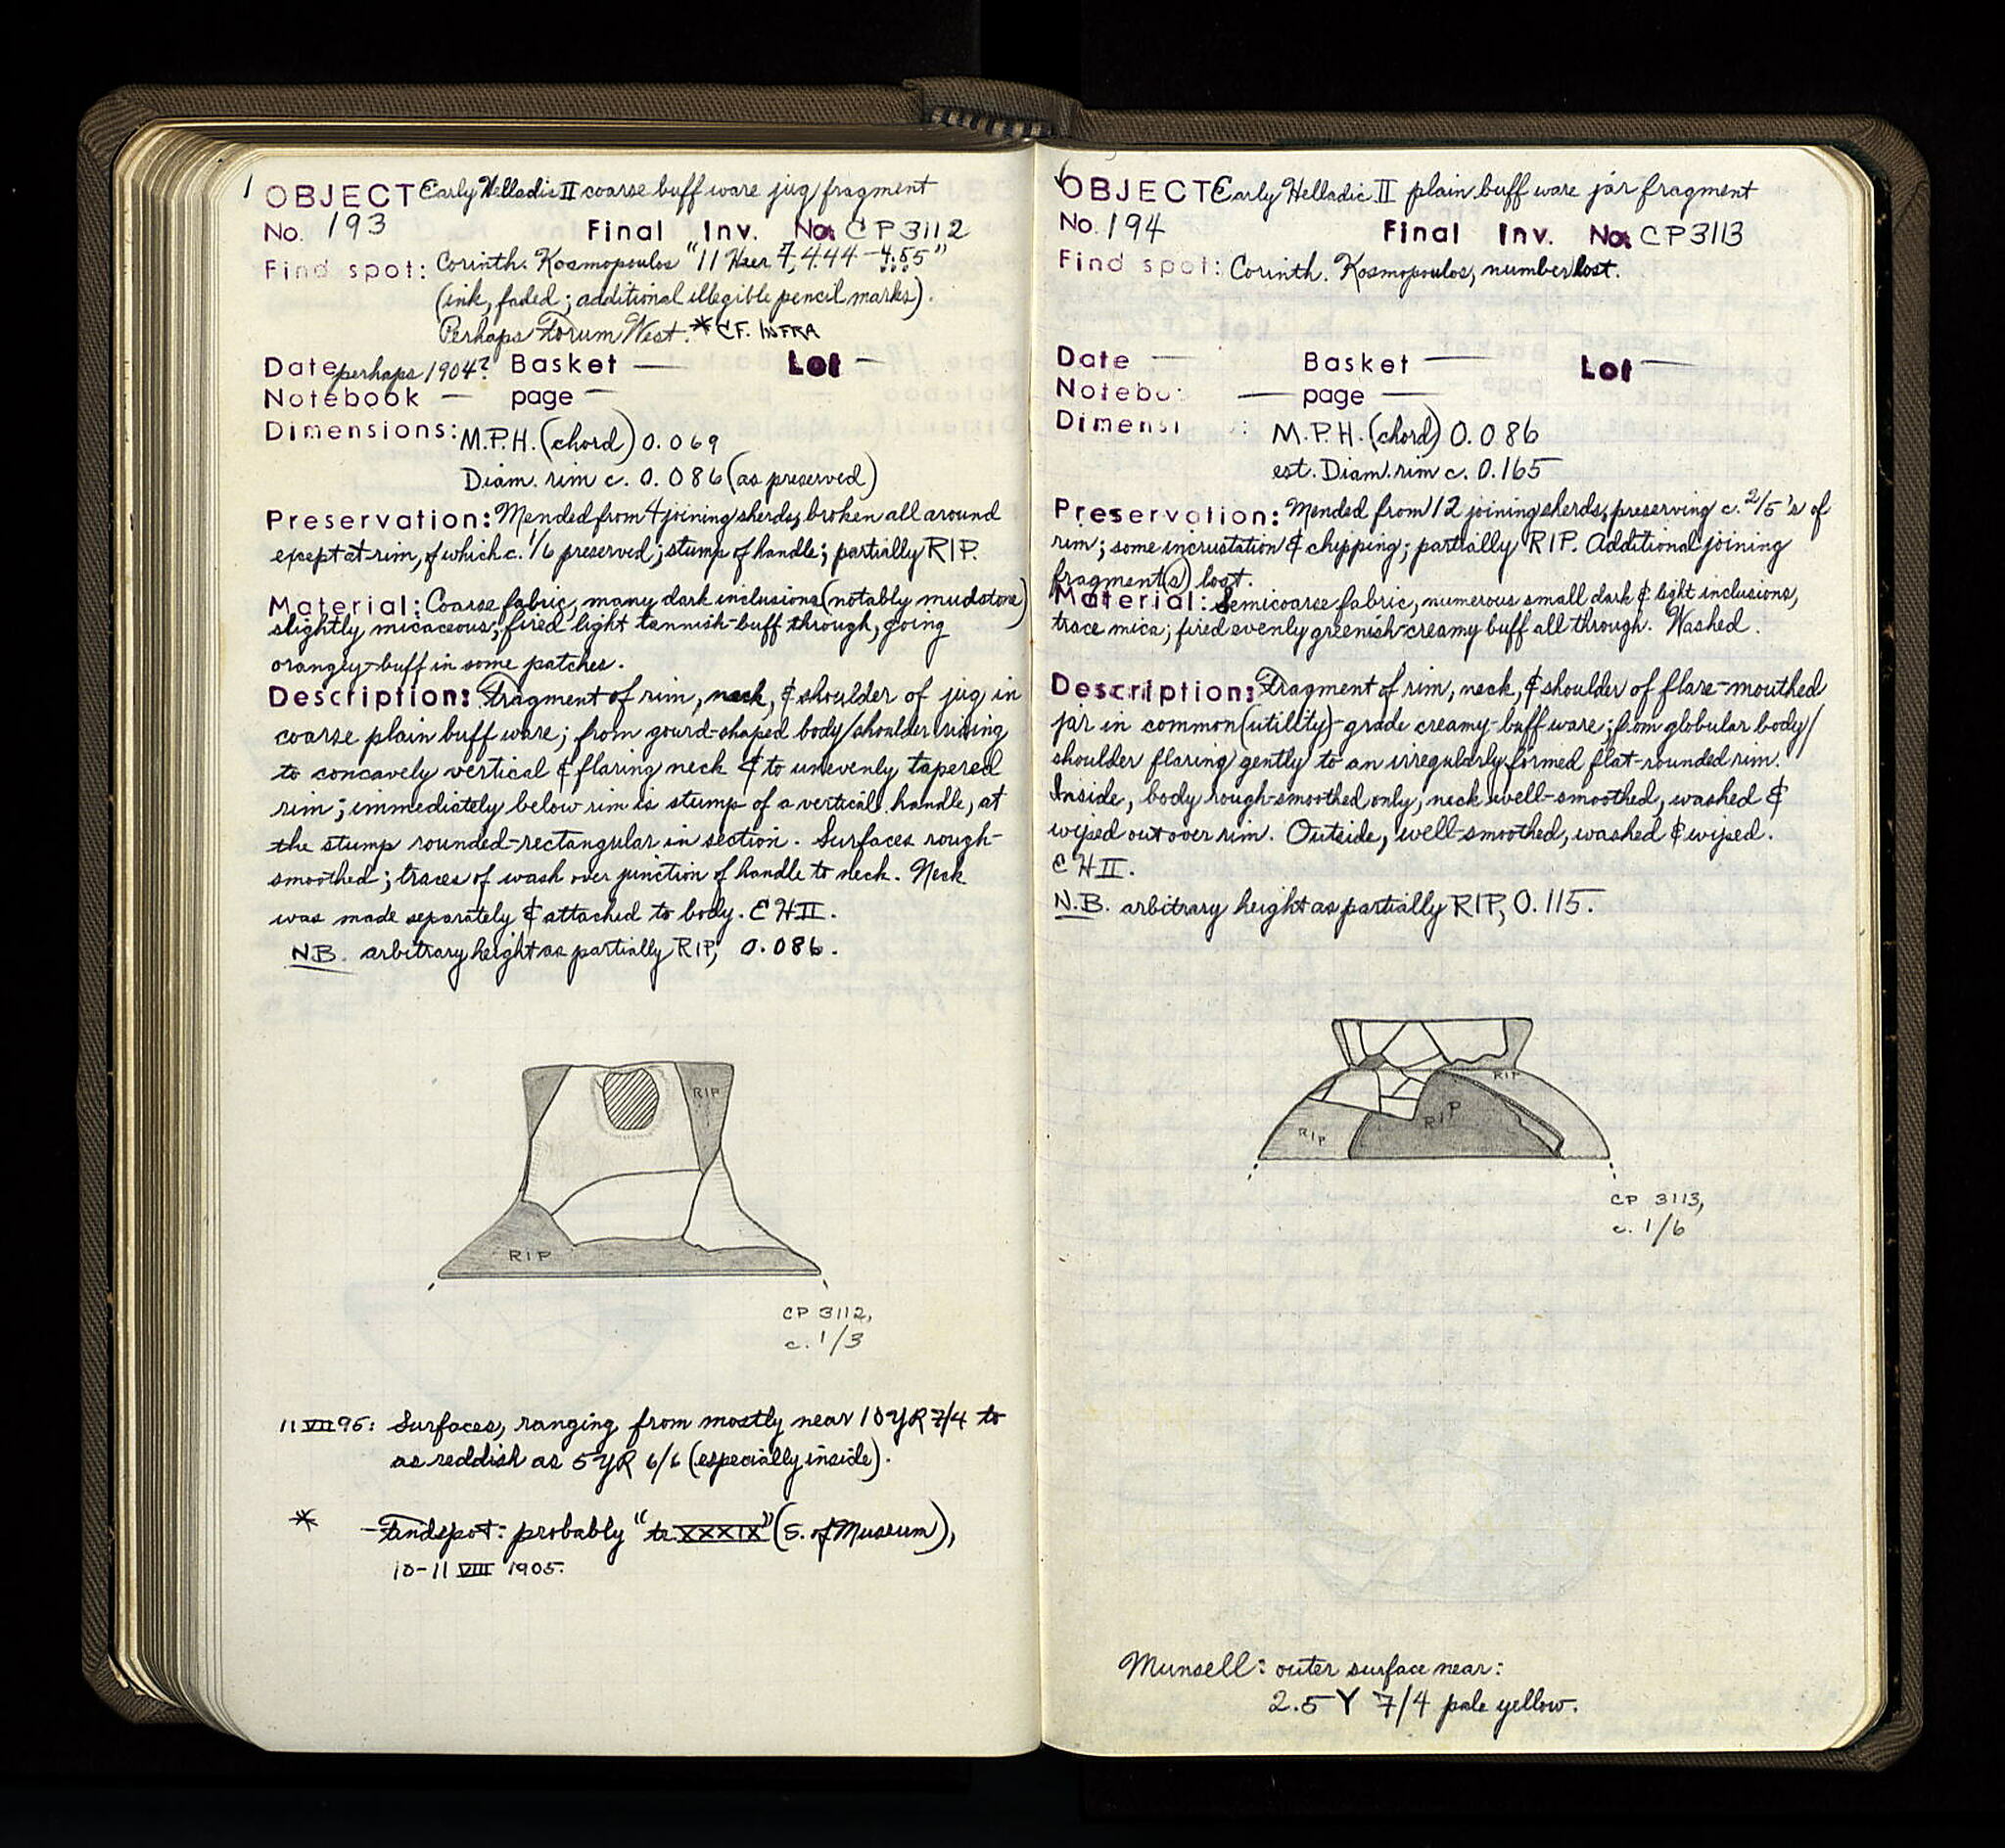 OBJECT Early Helladic II coarse buff ware jug fragment
No. 193 Final Inv. No. CP 3112
Find spot: Corinth. Kosmopoulos "11 4.44 – 4.55"
(ink, faded; additional illegible pencil marks).
Perhaps Forum West. * CF. INFRA
Date perhaps 1904? Basket — Lot —
Notebook — page —
Dimensions: M.P.H. (chord) 0.069
Diam. rim c. 0.086 (as preserved)
Preservation: Mended from 4 joining sherds, broken all around
except at rim, of which c. 1/6 preserved; stump of handle; partially RIP.
Material: Coarse fabric, many dark inclusions (notably mudstone)
slightly micaceous; fired light tannish-buff through, going
orangey-buff in some patches.
Description: Fragment of rim, neck, & shoulder of jug in
coarse plain buff ware; from gourd-shaped body/shoulder rising
to concavely vertical & flaring neck & to unevenly tapered
rim; immediately below rim is stump of a vertical handle, at
the stump rounded-rectangular in section. Surfaces rough-
smoothed; traces of wash over junction of handle to neck. Neck
was made separately & attached to body. EH II.
N.B. arbitrary height as partially RIP, 0.086.
RIP
RIP
CP 3112,
c. 1/3
11 VII 95: Surfaces, ranging from mostly near 10YR 7/4 to
as reddish as 5YR 6/6 (especially inside).
* Findspot: probably "tr. XXXIX" (S. of Museum),
10-11 VIII 1905.
OBJECT Early Helladic II plain buff ware jar fragment
No. 194 Final Inv. No. CP 3113
Find spot: Corinth. Kosmopoulos, number lost.
Date — Basket — Lot —
Notebo — page —
Dimensi : M.P.H. (chord) 0.086
est. Diam. rim c. 0.165
Preservation: Mended from 12 joining sherds, preserving c. 2/5's of
rim; some incrustation & chipping; partially RIP. Additional joining
fragment(s) lost.
Material: Semicoarse fabric, numerous small dark & light inclusions,
trace mica; fired evenly greenish-creamy buff all through. Washed.
Description: Fragment of rim, neck, & shoulder of flare-mouthed
jar in common (utility)-grade creamy-buff ware; from globular body/
shoulder flaring gently to an irregularly formed flat-rounded rim.
Inside, body rough-smoothed only, neck well-smoothed, washed &
wiped out over rim. Outside, well-smoothed, washed & wiped.
EH II.
N.B. arbitrary height as partially RIP, 0.115.
RIP
RIP
RIP
CP 3113,
c. 1/6
Munsell: outer surface near:
2.5 Y 7/4 pale yellow.